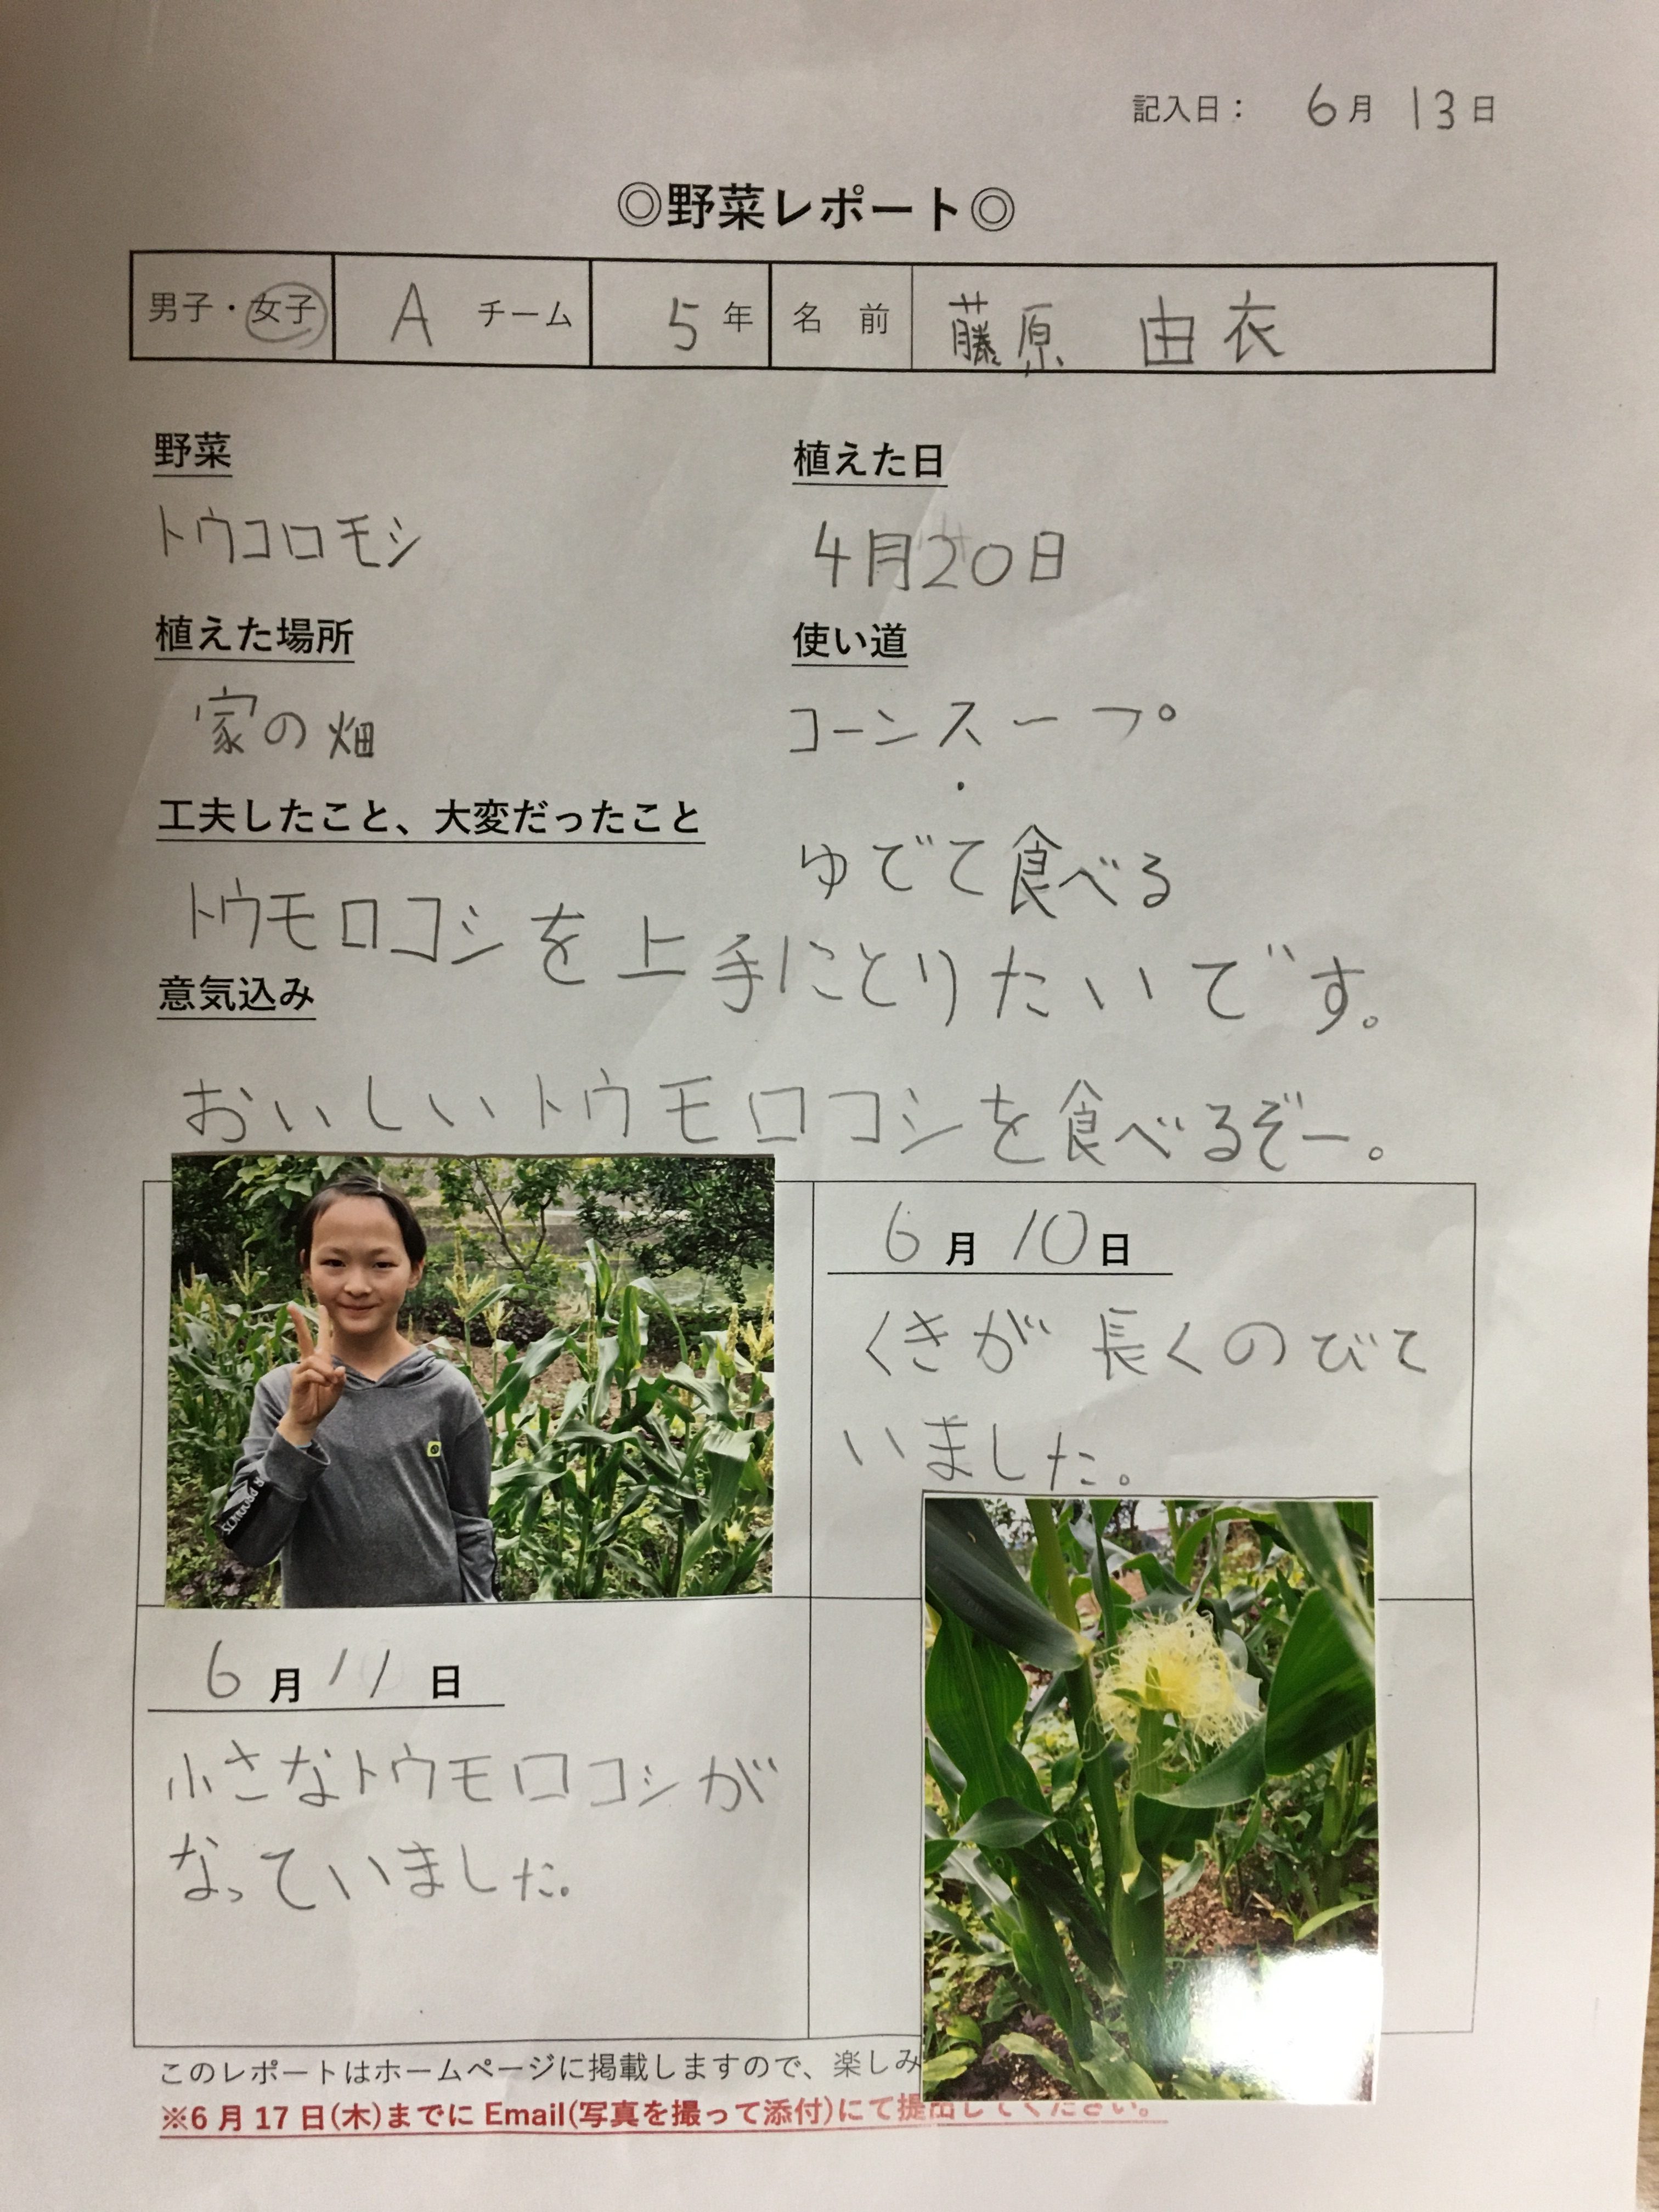 記入日： 6月 13日
◎野菜レポート◎
男子・女子 A チーム 5年 名前 藤原 由衣
野菜
トウコロモシ
植えた日
4月20日
植えた場所
家の畑
使い道
コーンスープ
・
ゆでて食べる
工夫したこと、大変だったこと
トウモロコシを上手にとりたいです。
意気込み
おいしいトウモロコシを食べるぞー。
6月10日
くきが長くのびて
いました。
6月11日
小さなトウモロコシが
なっていました。
このレポートはホームページに掲載しますので、楽しみ
※6月17日(木)までにEmail(写真を撮って添付)にて提出してください。